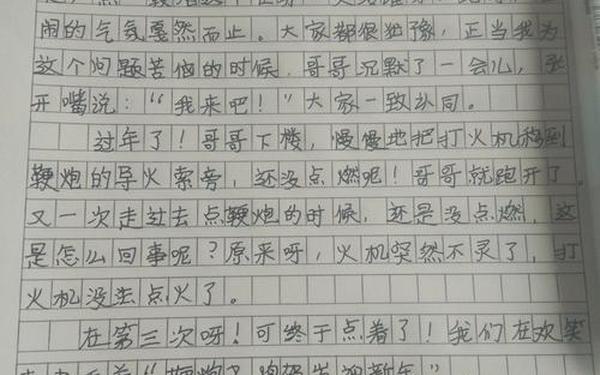 闹的气氛戛然而止。大家都很犹豫,正当我为
这个问题苦恼的时候,哥哥沉默了一会儿,张
开嘴说:“我来吧!”大家一致认同。
过年了!哥哥下楼,慢慢地把打火机移到
鞭炮的导火索旁,还没点燃呢!哥哥就跑开了。
又一次走过去点鞭炮的时候,还是没点燃,这
是怎么回事呢?原来呀,火机突然不灵了,打
火机没法点火了。
在第三次呀!可终于点着了!我们在欢笑